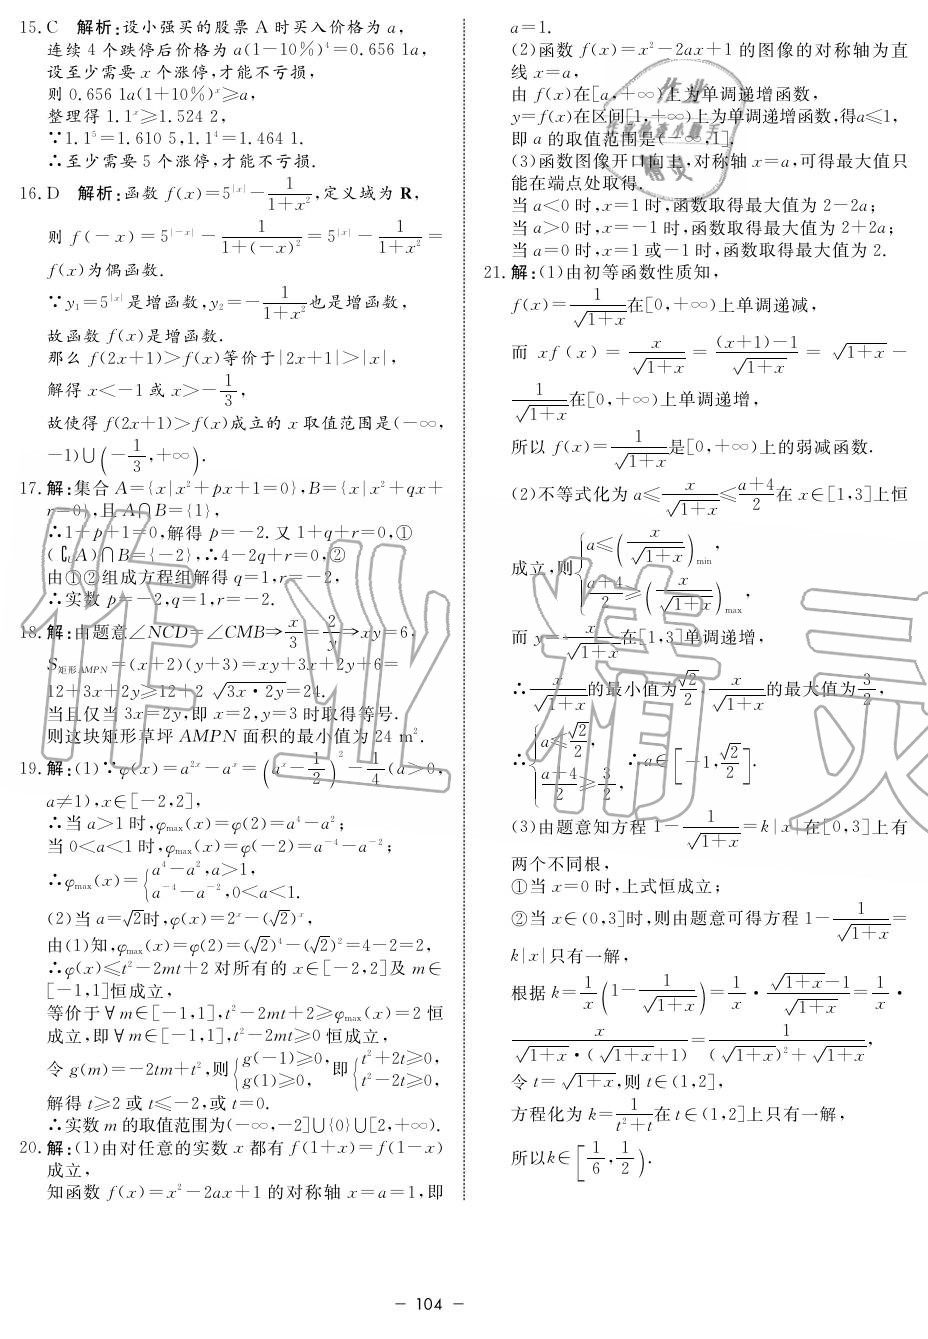 15. C 解析:设小强买的股票 A 时买入价格为 a,
连续 4 个跌停后价格为 a(1−10%)⁴=0.656 1a,
设至少需要 x 个涨停,才能不亏损,
则 0.656 1a(1+10%)ˣ≥a,
整理得 1.1ˣ≥1.524 2,
∵1.1⁵=1.610 5,1.1⁴=1.464 1.
∴至少需要 5 个涨停,才能不亏损.
16. D 解析:函数 f(x)=5^|x|−1/(1+x²),定义域为 R,
则 f(−x)=5^|−x|−1/(1+(−x)²)=5^|x|−1/(1+x²)=
f(x)为偶函数.
∵y₁=5^|x|是增函数,y₂=−1/(1+x²)也是增函数,
故函数 f(x)是增函数.
那么 f(2x+1)>f(x)等价于|2x+1|>|x|,
解得 x<−1 或 x>−1/3,
故使得 f(2x+1)>f(x)成立的 x 取值范围是(−∞,
−1)∪(−1/3,+∞).
17. 解:集合 A={x|x²+px+1=0},B={x|x²+qx+
r=0},且 A∩B={1},
∴1+p+1=0,解得 p=−2. 又 1+q+r=0,①
(∁ᵤA)∩B={−2},∴4−2q+r=0,②
由①②组成方程组解得 q=1,r=−2,
∴实数 p=−2,q=1,r=−2.
18. 解:由题意∠NCD=∠CMB⇒x/3=2/y⇒xy=6,
S矩形AMPN=(x+2)(y+3)=xy+3x+2y+6=
12+3x+2y≥12+2√(3x·2y)=24.
当且仅当 3x=2y,即 x=2,y=3 时取得等号.
则这块矩形草坪 AMPN 面积的最小值为 24 m².
19. 解:(1)∵φ(x)=a²ˣ−aˣ=(aˣ−1/2)²−1/4(a>0,
a≠1),x∈[−2,2],
∴当 a>1 时,φmax(x)=φ(2)=a⁴−a²;
当 0<a<1 时,φmax(x)=φ(−2)=a⁻⁴−a⁻²;
∴φmax(x)={a⁴−a²,a>1,
a⁻⁴−a⁻²,0<a<1.
(2)当 a=√2时,φ(x)=2ˣ−(√2)ˣ,
由(1)知,φmax(x)=φ(2)=(√2)⁴−(√2)²=4−2=2,
∴φ(x)≤t²−2mt+2 对所有的 x∈[−2,2]及 m∈
[−1,1]恒成立,
等价于∀m∈[−1,1],t²−2mt+2≥φmax(x)=2 恒
成立,即∀m∈[−1,1],t²−2mt≥0 恒成立,
令 g(m)=−2tm+t²,则{g(−1)≥0, g(1)≥0,即{t²+2t≥0, t²−2t≥0,
解得 t≥2 或 t≤−2,或 t=0.
∴实数 m 的取值范围为(−∞,−2]∪{0}∪[2,+∞).
20. 解:(1)由对任意的实数 x 都有 f(1+x)=f(1−x)
成立,
知函数 f(x)=x²−2ax+1 的对称轴 x=a=1,即
a=1.
(2)函数 f(x)=x²−2ax+1 的图像的对称轴为直
线 x=a,
由 f(x)在[a,+∞)上为单调递增函数,
y=f(x)在区间[1,+∞)上为单调递增函数,得a≤1,
即 a 的取值范围是(−∞,1].
(3)函数图像开口向上,对称轴 x=a,可得最大值只
能在端点处取得.
当 a<0 时,x=1 时,函数取得最大值为 2−2a;
当 a>0 时,x=−1 时,函数取得最大值为 2+2a;
当 a=0 时,x=1 或−1 时,函数取得最大值为 2.
21. 解:(1)由初等函数性质知,
f(x)=1/√(1+x)在[0,+∞)上单调递减,
而 xf(x)=x/√(1+x)=((x+1)−1)/√(1+x)=√(1+x)−
1/√(1+x)在[0,+∞)上单调递增,
所以 f(x)=1/√(1+x)是[0,+∞)上的弱减函数.
(2)不等式化为 a≤x/√(1+x)≤(a+4)/2在 x∈[1,3]上恒
成立,则{a≤(x/√(1+x))min,
(a+4)/2≥(x/√(1+x))max,
而 y=x/√(1+x)在[1,3]单调递增,
∴x/√(1+x)的最小值为√2/2,x/√(1+x)的最大值为3/2,
∴{a≤√2/2, (a+4)/2≥3/2, ∴a∈[−1,√2/2].
(3)由题意知方程 1−1/√(1+x)=k|x|在[0,3]上有
两个不同根,
①当 x=0 时,上式恒成立;
②当 x∈(0,3]时,则由题意可得方程 1−1/√(1+x)=
k|x|只有一解,
根据 k=1/x(1−1/√(1+x))=1/x·(√(1+x)−1)/√(1+x)=1/x·
x/(√(1+x)·(√(1+x)+1))=1/((√(1+x))²+√(1+x)),
令 t=√(1+x),则 t∈(1,2],
方程化为 k=1/(t²+t)在 t∈(1,2]上只有一解,
所以k∈[1/6,1/2).
作业精灵
作业
精灵
− 104 −